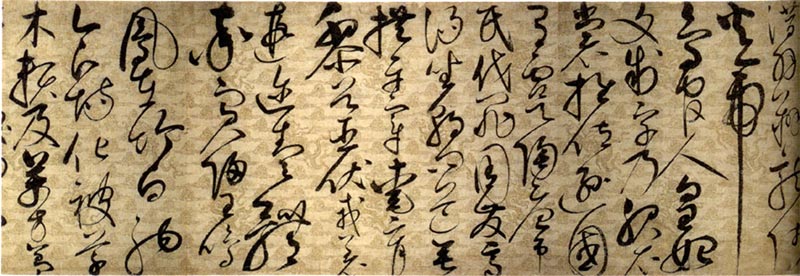 潛羽翔龍師
火帝
鳥官人皇始
制文字乃服衣
裳推位遜國
有虞陶唐弔
民伐罪周發商
湯坐朝問道垂
拱平章愛育
黎首臣伏戎羌
遐邇壹體
率賓歸王鳴
鳳在竹白駒
食場化被草
木賴及萬方蓋